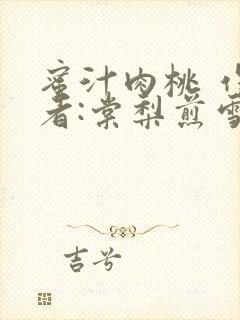 蜜汁肉桃 作
者:棠梨煎雪
吉兮